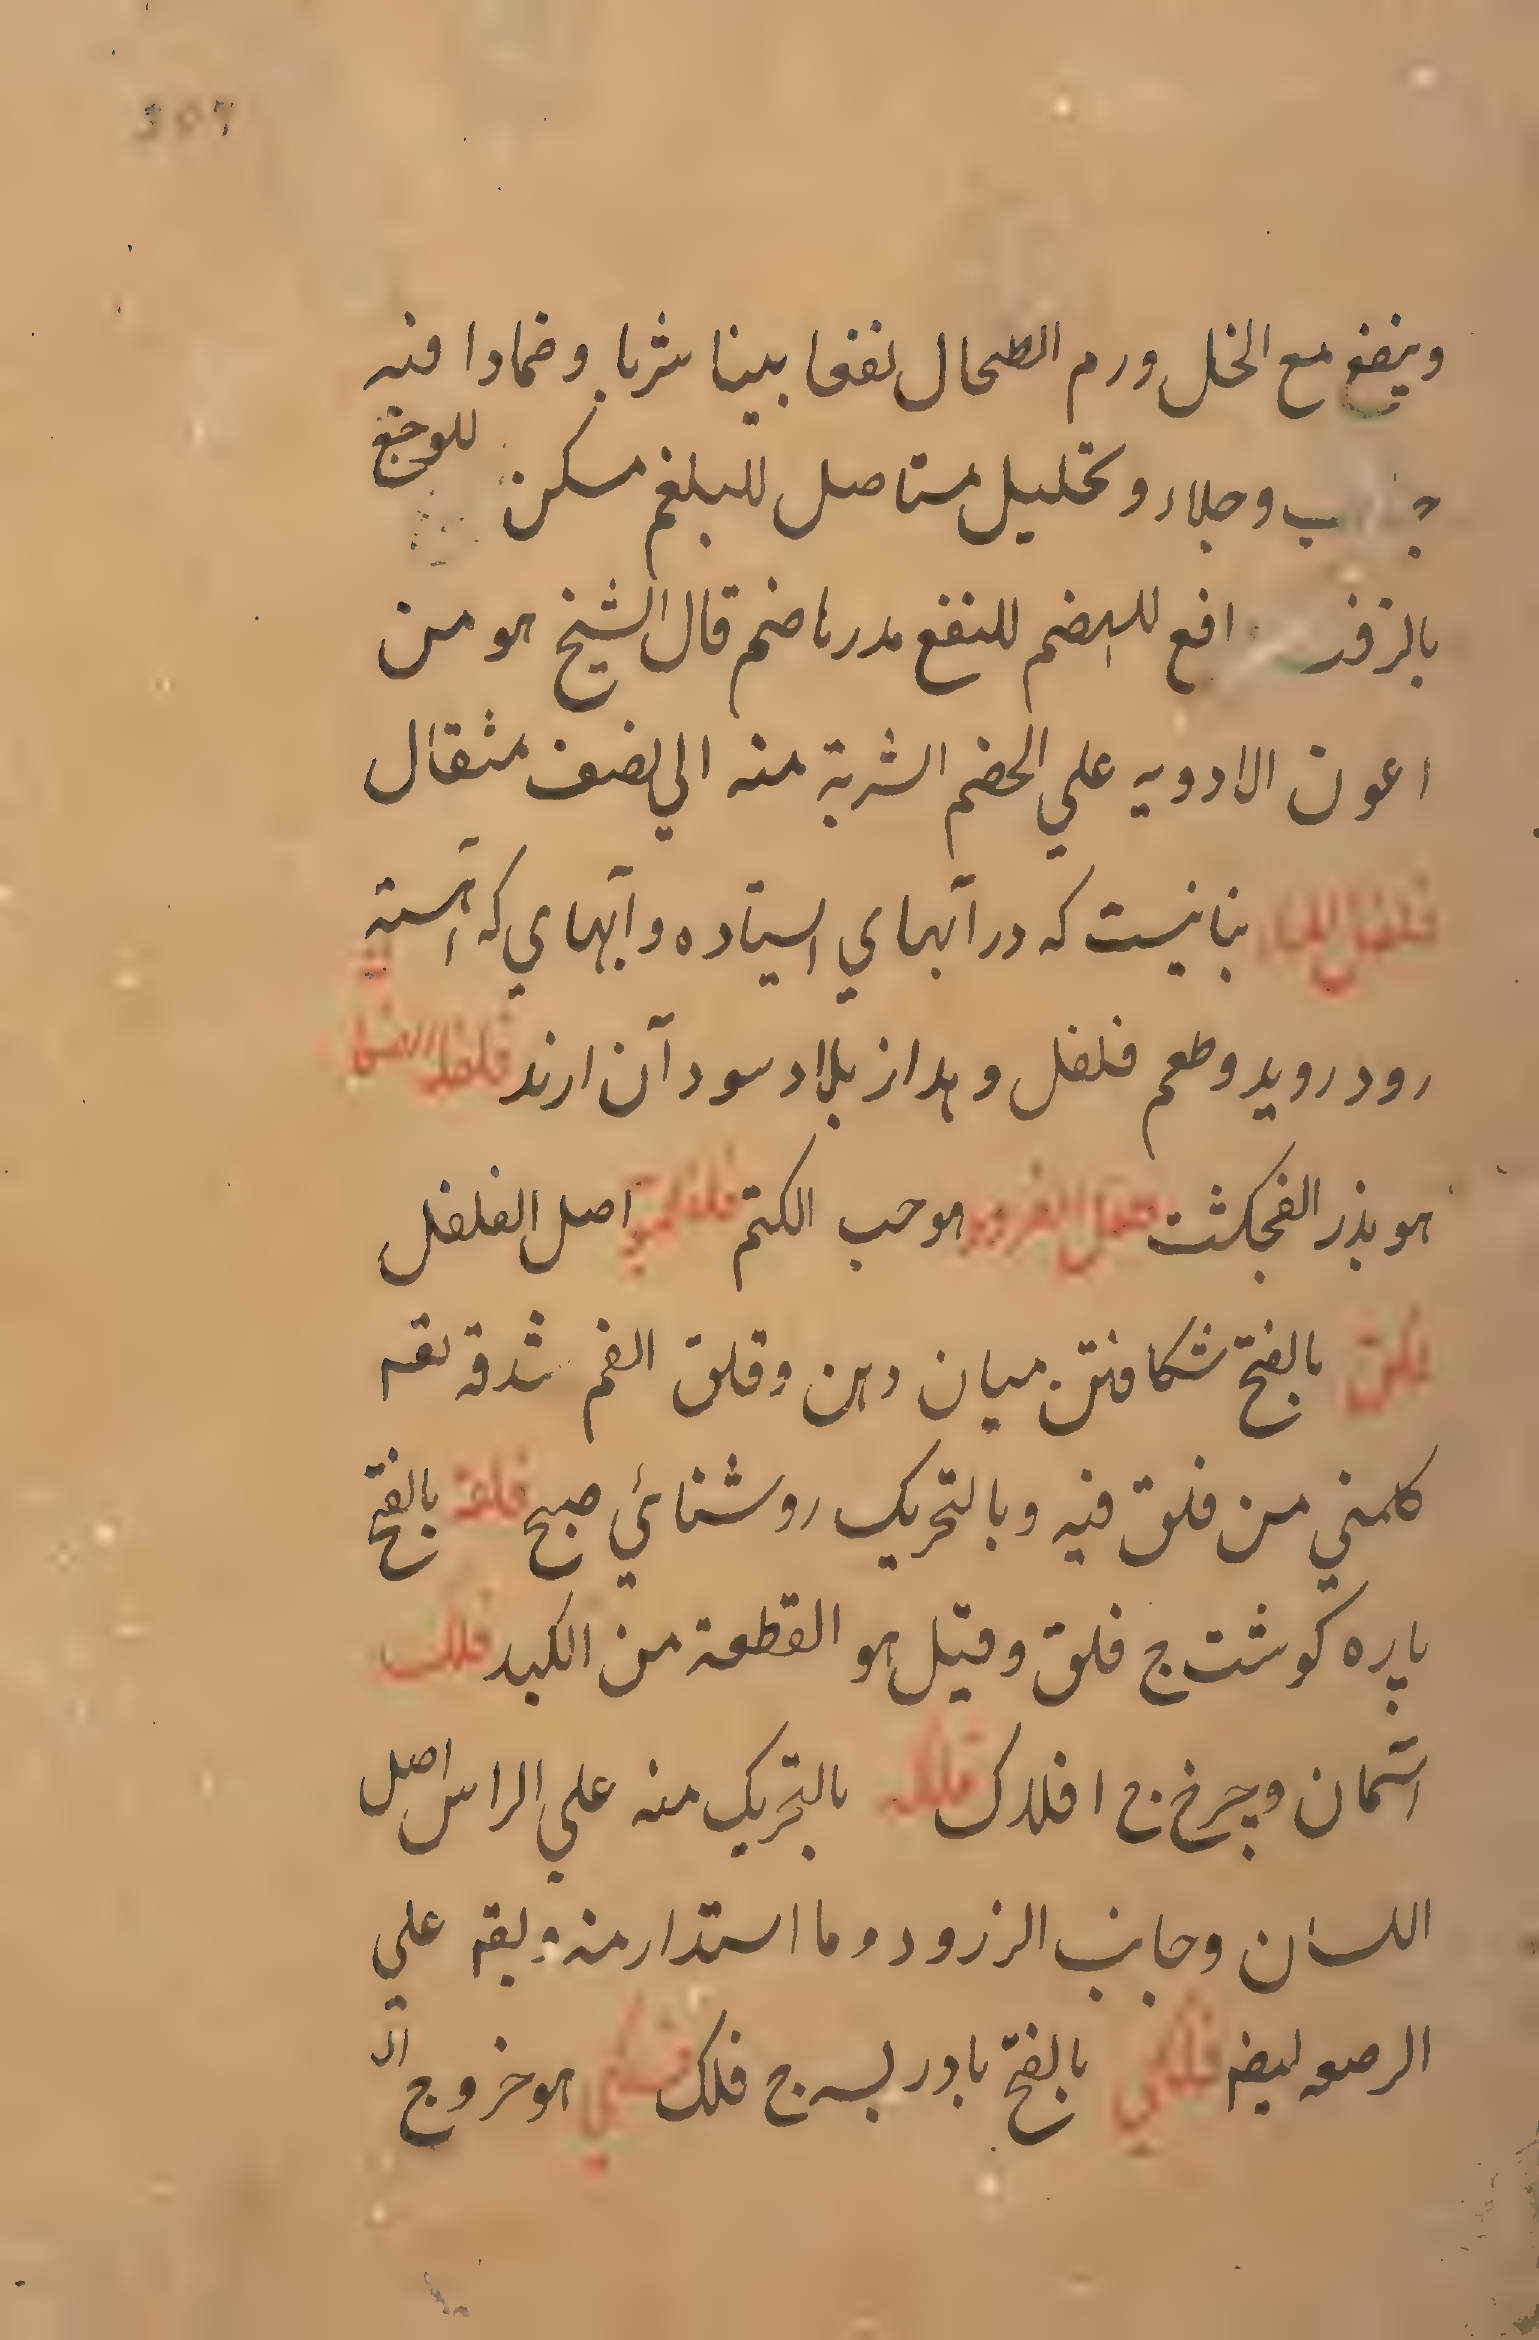 وينفع مع الخل ورم الطحال نفعا بينا شربا وضمادا فيه
وجلاء وتحليل مستاصل للبلغم مسكن للوجع
افع للهضم للنفع مدرهاضم قال الشيخ هو من
اعون الادويه علي الهضم الشربة منه الي نصف مثقال
فلفل الماء نباتيست كه در آبهاي ايستاده و آبهاي كه آهسته
رود رويد وطعم فلفل دهد از بلاد سودآن ارند فلفل
هو بذر الفنجكشت فلفل القرود هو حب الكتم فلفلمويه اصل الفلفل
فلق بالفتح شكافتن ميان دهن وفلق الفم شدقه يقم
كلمني من فلق فيه وبالتحريك روشنائي صبح فلقه بالفتح
پاره كوشت ج فلق وقيل هو القطعة من الكبد فلك
آسمان وچرخ ج افلاك فلكه بالتحريك منه علي الراس اصل
اللسان وجانب الزرود وما استدار منه ويقم علي
بالفتح بادريسه ج فلك هو خروج